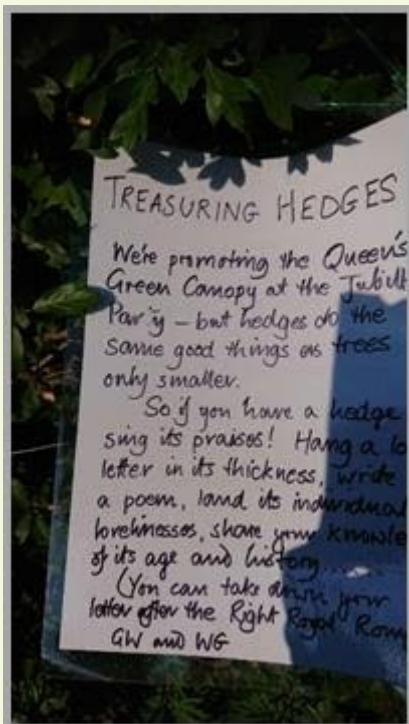 TREASURING HEDGES
We're promoting the Queen's
Green Canopy at the Jubil
Party – but hedges do the
same good things as trees
only smaller.
So if you have a hedge
sing its praises! Hang a lo
letter in its thickness, write
a poem, laud its individual
lovelinesses, share your knowle
of its age and history......
(You can take down your
letter after the Right Royal Romp
GW and WG